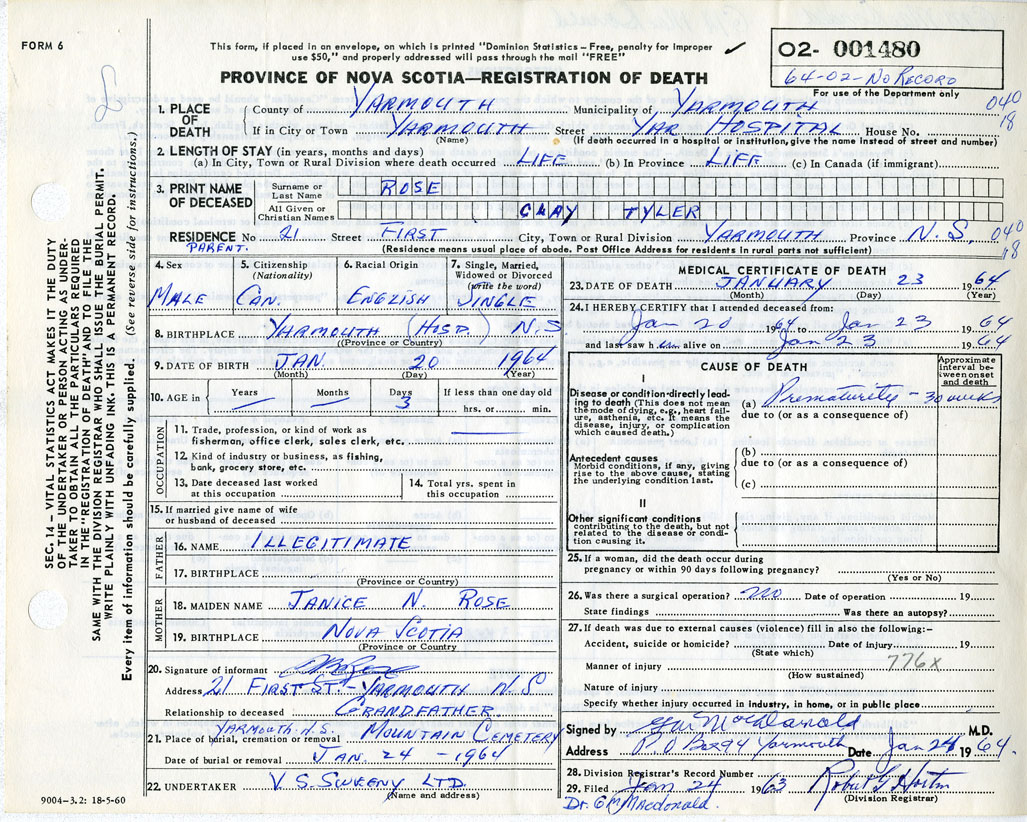 FORM 6
This form, if placed in an envelope, on which is printed "Dominion Statistics – Free, penalty for improper
use $50," and properly addressed will pass through the mail "FREE"
✓
O2- 001480
64-02-No Record
For use of the Department only
PROVINCE OF NOVA SCOTIA—REGISTRATION OF DEATH
SEC. 14 – VITAL STATISTICS ACT MAKES IT THE DUTY
OF THE UNDERTAKER OR PERSON ACTING AS UNDER-
TAKER TO OBTAIN ALL THE PARTICULARS REQUIRED
IN THE "REGISTRATION OF DEATH" AND TO FILE THE
SAME WITH THE DIVISION REGISTRAR WHO SHALL ISSUE THE BURIAL PERMIT.
WRITE PLAINLY WITH UNFADING INK. THIS IS A PERMANENT RECORD.
Every item of information should be carefully supplied. (See reverse side for instructions.)
1. PLACE OF DEATH County of YARMOUTH Municipality of YARMOUTH 040
If in City or Town YARMOUTH Street YAR HOSPITAL House No. 18
(Name) (If death occurred in a hospital or institution, give the name instead of street and number)
2. LENGTH OF STAY (in years, months and days)
(a) In City, Town or Rural Division where death occurred LIFE (b) In Province LIFE (c) In Canada (if immigrant)
3. PRINT NAME OF DECEASED Surname or Last Name ROSE
All Given or Christian Names CLAY TYLER
RESIDENCE No 21 Street FIRST City, Town or Rural Division YARMOUTH Province N.S. 040
PARENT. (Residence means usual place of abode. Post Office Address for residents in rural parts not sufficient) 18
4. Sex 5. Citizenship (Nationality) 6. Racial Origin 7. Single, Married, Widowed or Divorced (write the word)
MALE CAN. ENGLISH SINGLE
8. BIRTHPLACE YARMOUTH (HOSP.) N.S
(Province or Country)
9. DATE OF BIRTH JAN. 20 1964
(Month) (Day) (Year)
10. AGE in Years Months Days 3 If less than one day old hrs. or min.
OCCUPATION
11. Trade, profession, or kind of work as
fisherman, office clerk, sales clerk, etc.
12. Kind of industry or business, as fishing,
bank, grocery store, etc.
13. Date deceased last worked at this occupation 14. Total yrs. spent in this occupation
15. If married give name of wife
or husband of deceased
FATHER
16. NAME ILLEGITIMATE
17. BIRTHPLACE
(Province or Country)
MOTHER
18. MAIDEN NAME JANICE N. ROSE
19. BIRTHPLACE NOVA SCOTIA
(Province or Country
20. Signature of informant
Address 21 FIRST ST.- YARMOUTH N.S
Relationship to deceased GRANDFATHER.
21. Place of burial, cremation or removal YARMOUTH N.S. MOUNTAIN CEMETERY
Date of burial or removal JAN. 24 - 1964
22. UNDERTAKER V.S. SWEENY LTD.
(Name and address)
9004–3.2: 18-5-60
MEDICAL CERTIFICATE OF DEATH
23. DATE OF DEATH JANUARY 23 1964
(Month) (Day) (Year)
24. I HEREBY CERTIFY that I attended deceased from:
Jan 20 1964 to Jan 23 1964
and last saw him alive on Jan 23 1964
CAUSE OF DEATH
Approximate interval between onset and death
I
Disease or condition directly lead-
ing to death (This does not mean
the mode of dying, e.g., heart fail-
ure, asthenia, etc. It means the
disease, injury, or complication
which caused death.)
(a) Prematurity - 30 weeks
due to (or as a consequence of)
Antecedent causes
Morbid conditions, if any, giving
rise to the above cause, stating
the underlying condition last.
(b)
due to (or as a consequence of)
(c)
II
Other significant conditions
contributing to the death, but not
related to the disease or condi-
tion causing it.
25. If a woman, did the death occur during
pregnancy or within 90 days following pregnancy?
(Yes or No)
26. Was there a surgical operation? no Date of operation 19
State findings Was there an autopsy?
27. If death was due to external causes (violence) fill in also the following:–
Accident, suicide or homicide? Date of injury 19
(State which) 776x
Manner of injury
(How sustained)
Nature of injury
Specify whether injury occurred in industry, in home, or in public place
Signed by GM MacDonald M.D.
Address P O Box 94 Yarmouth Date Jan 24 1964.
28. Division Registrar's Record Number
29. Filed Jan 24 1963 Robert G Horton
Dr. G M Macdonald. (Division Registrar)